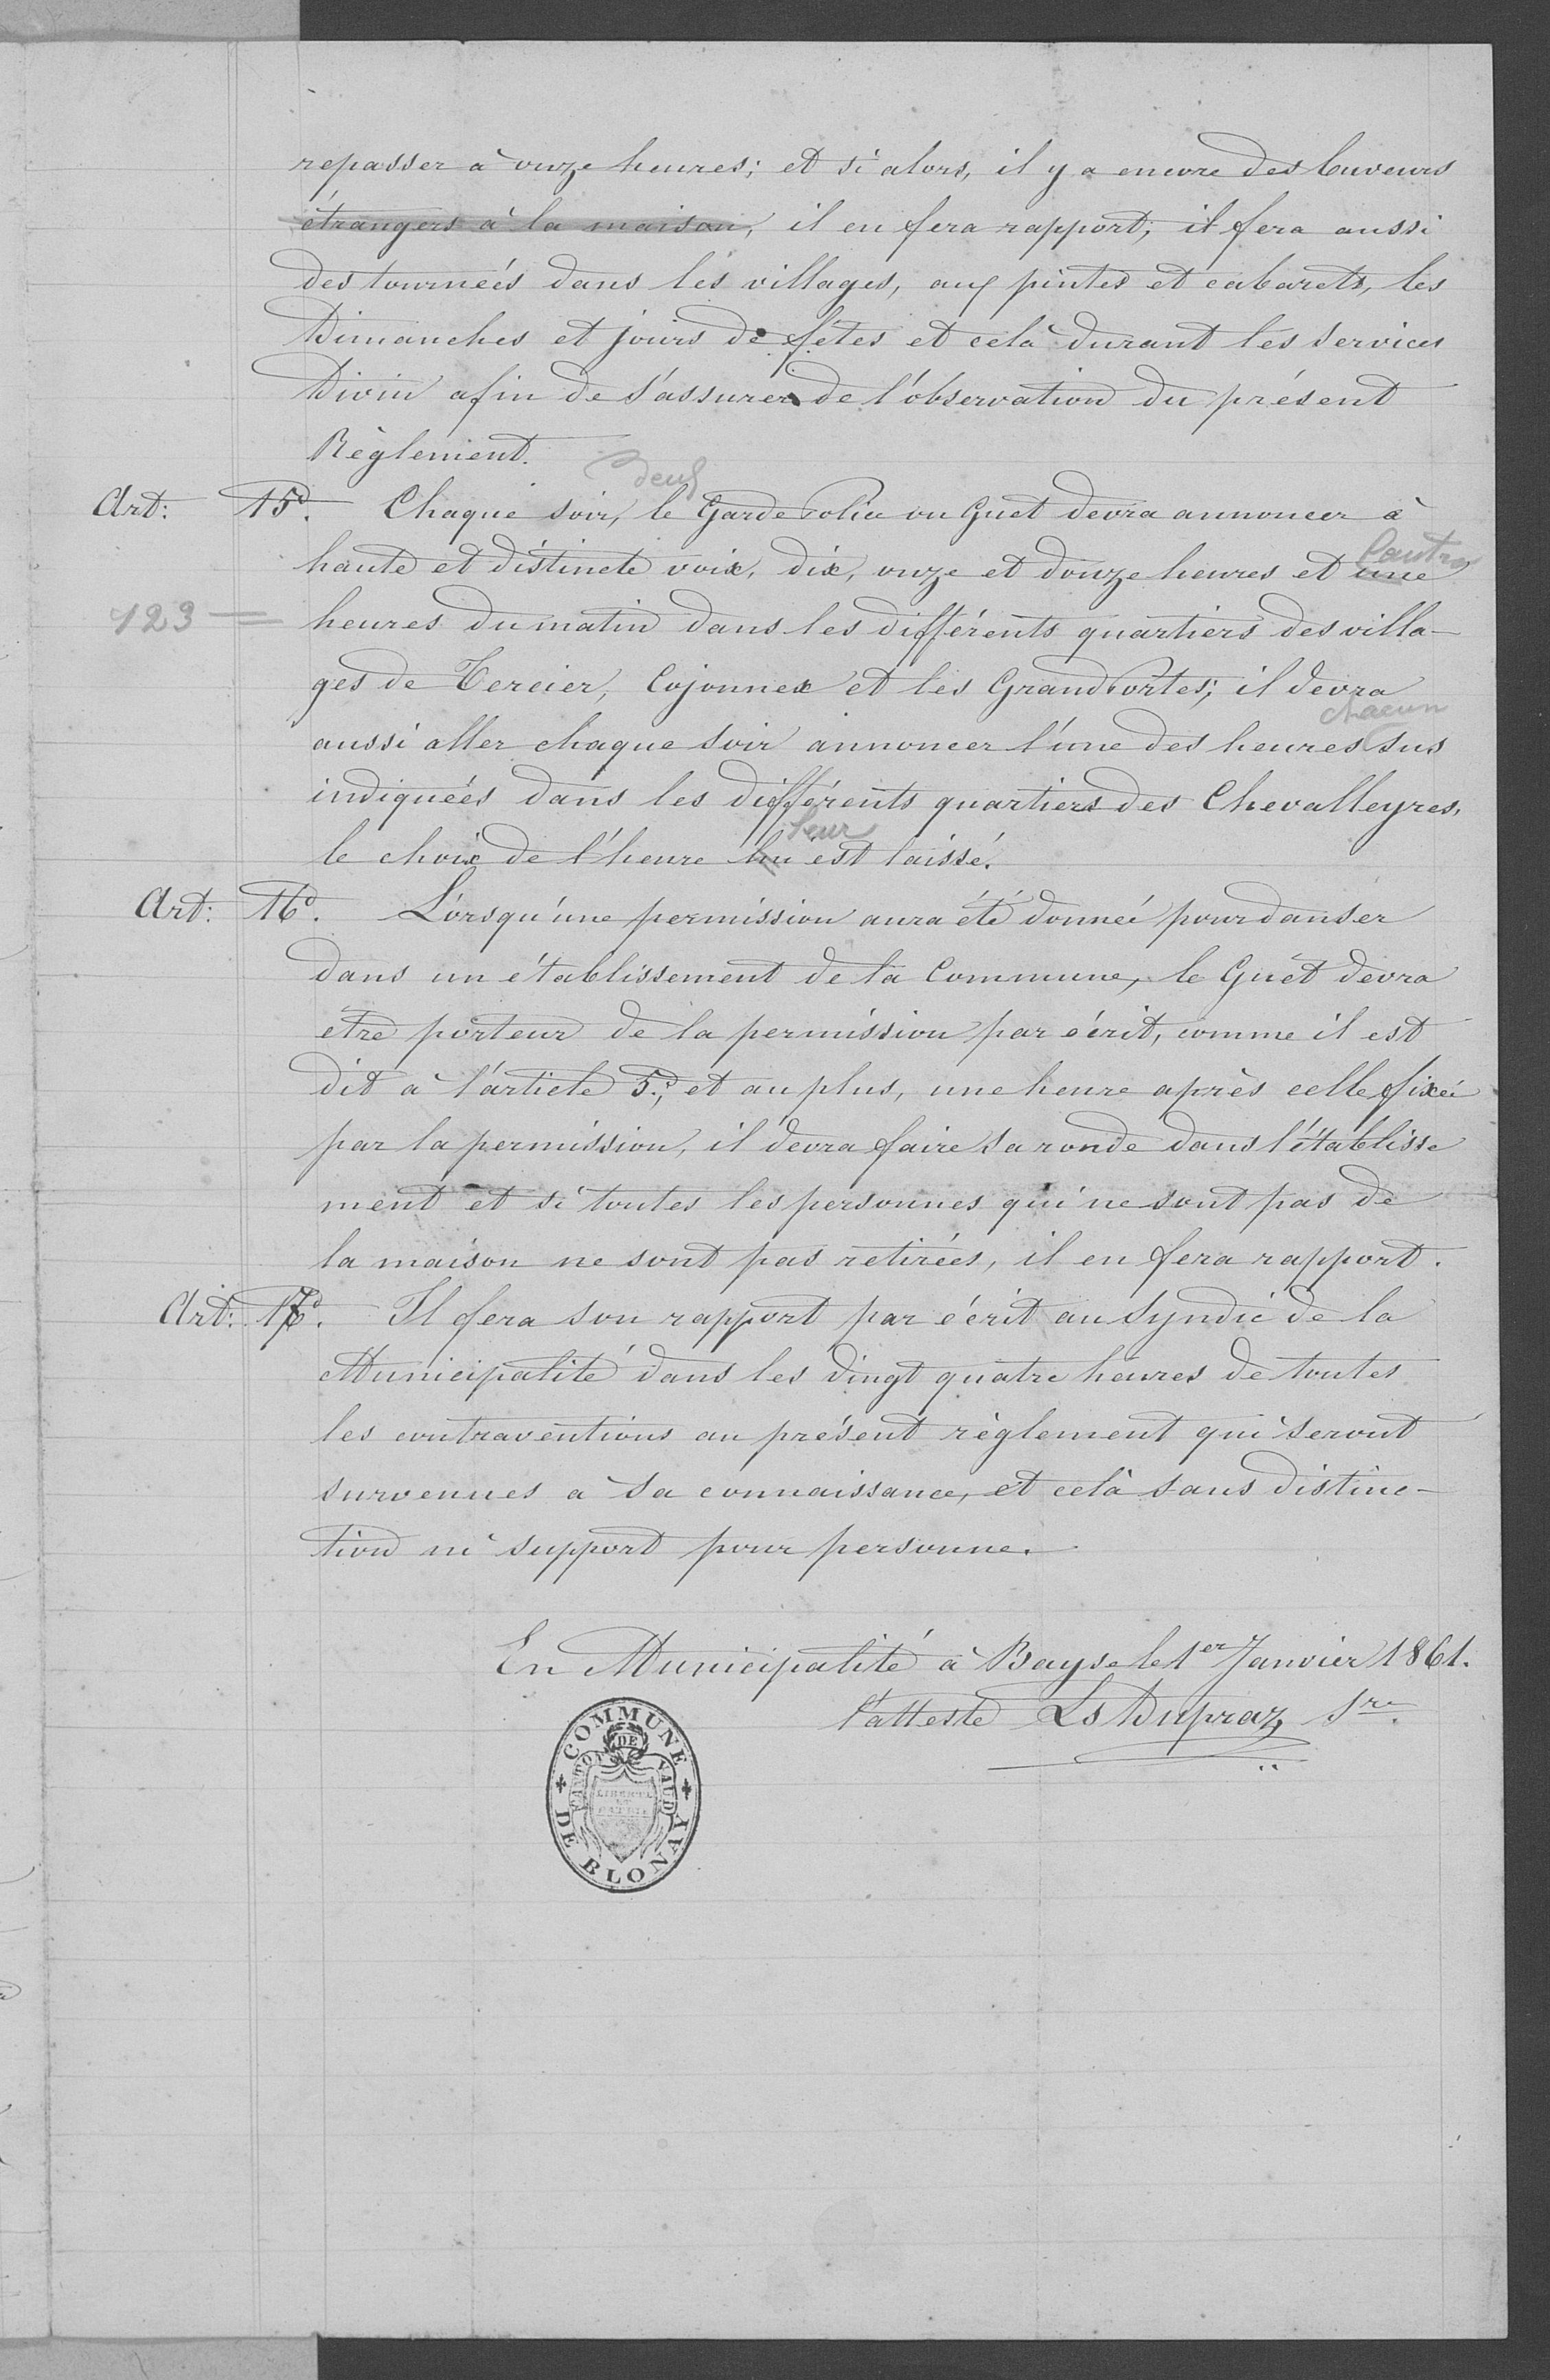 repasser à onze heures; et si alors, il y a encore des buveurs
étrangers à la maison, il en fera rapport; il fera aussi
des tournées dans les villages, aux pintes et cabarets, les
Dimanches et jours de fêtes et celà durant les services
Divin afin de s'assurer de l'observation du présent
Règlement.
deux
Art: 15°. Chaque soir, le Garde Police ou Guet devra annoncer à
l'autre
haute et distincte voix, dix, onze et douze heures et une
123 = heures du matin dans les différents quartiers des villa-
ges de Tercier, Cojonnex et les Grand Portes; il devra
chacun
aussi aller chaque soir annoncer l'une des heures sus
indiquées dans les différents quartiers des Chevalleyres,
leur
le choix de l'heure lui est laissé.
Art: 16°. Lorsqu'une permission aura été donnée pour danser
dans un établissement de la Commune, le Guet devra
etre porteur de la permission par écrit, comme il est
dit à l'article 5°, et au plus, une heure après celle fixée
par la permission, il devra faire sa ronde dans l'établisse
ment et si toutes les personnes qui ne sont pas de
la maison ne sont pas retirées, il en fera rapport.
Art: 17°. Il fera son rapport par écrit au Syndic de la
Municipalité dans les vingt quatre heures de toutes
les contraventions au présent règlement qui seront
survenues a sa connaissance, et celà sans distinc-
tion ni support pour personne.
En Municipalité à Bayse le 1er Janvier 1861.
l'atteste Ls Dupraz Sre.
COMMUNE DE BLONAY
CANTON DE VAUD
LIBERTÉ
ET
PATRIE